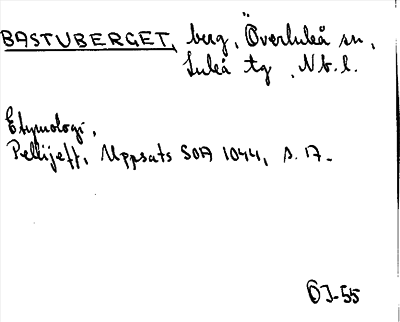 BASTUBERGET, berg, Överluleå sn,
Luleå tg, Nb. l.
Etymologi,
Pellijeff, Uppsats SOA 1044, s. 17.
ÖJ-55